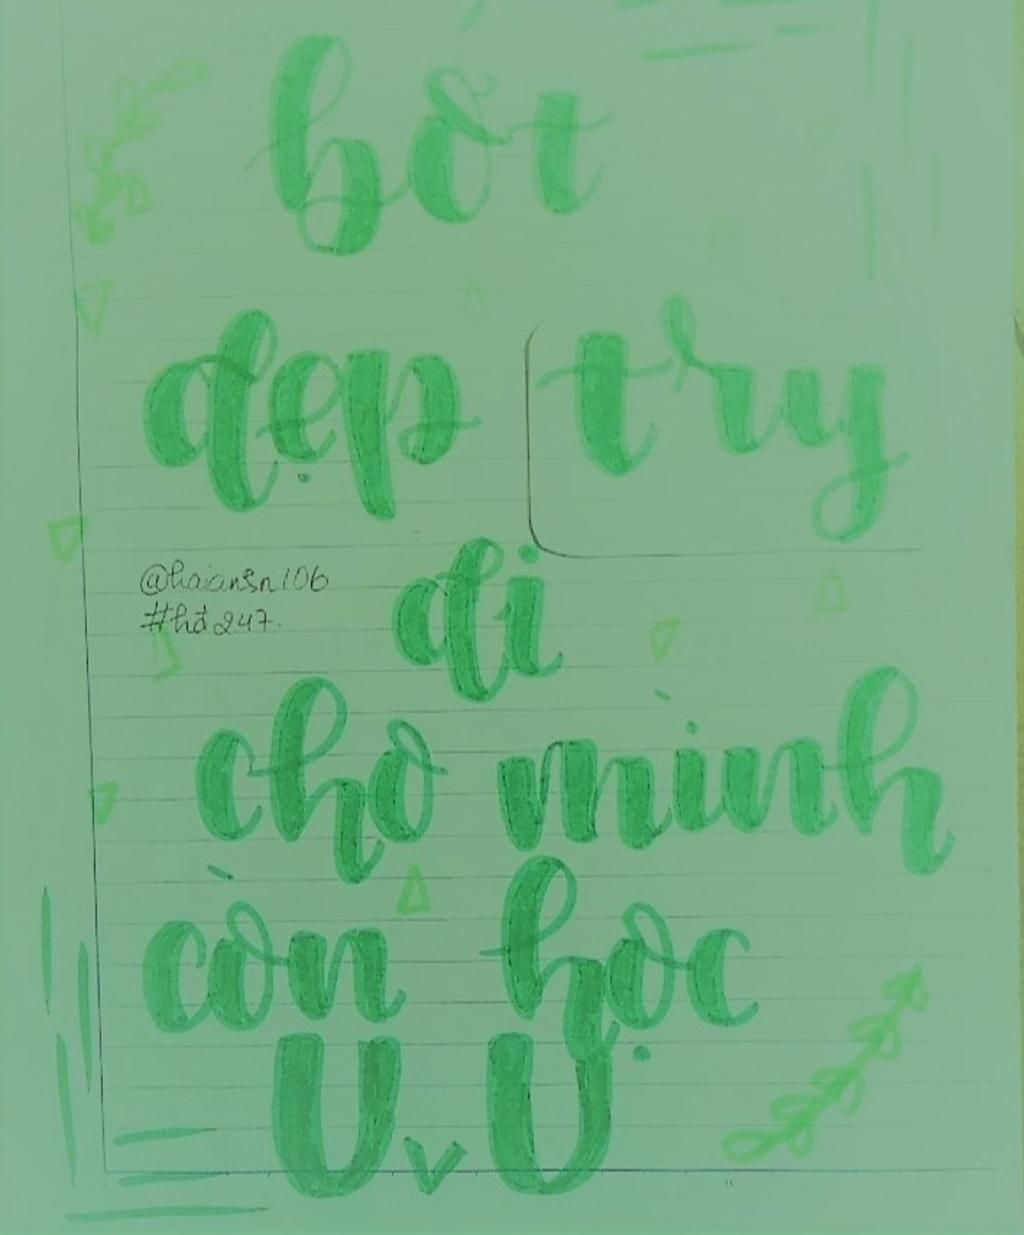 bớt
đẹp try
@haiansn106
#hđ247.
đi
cho mình
còn học
UvU